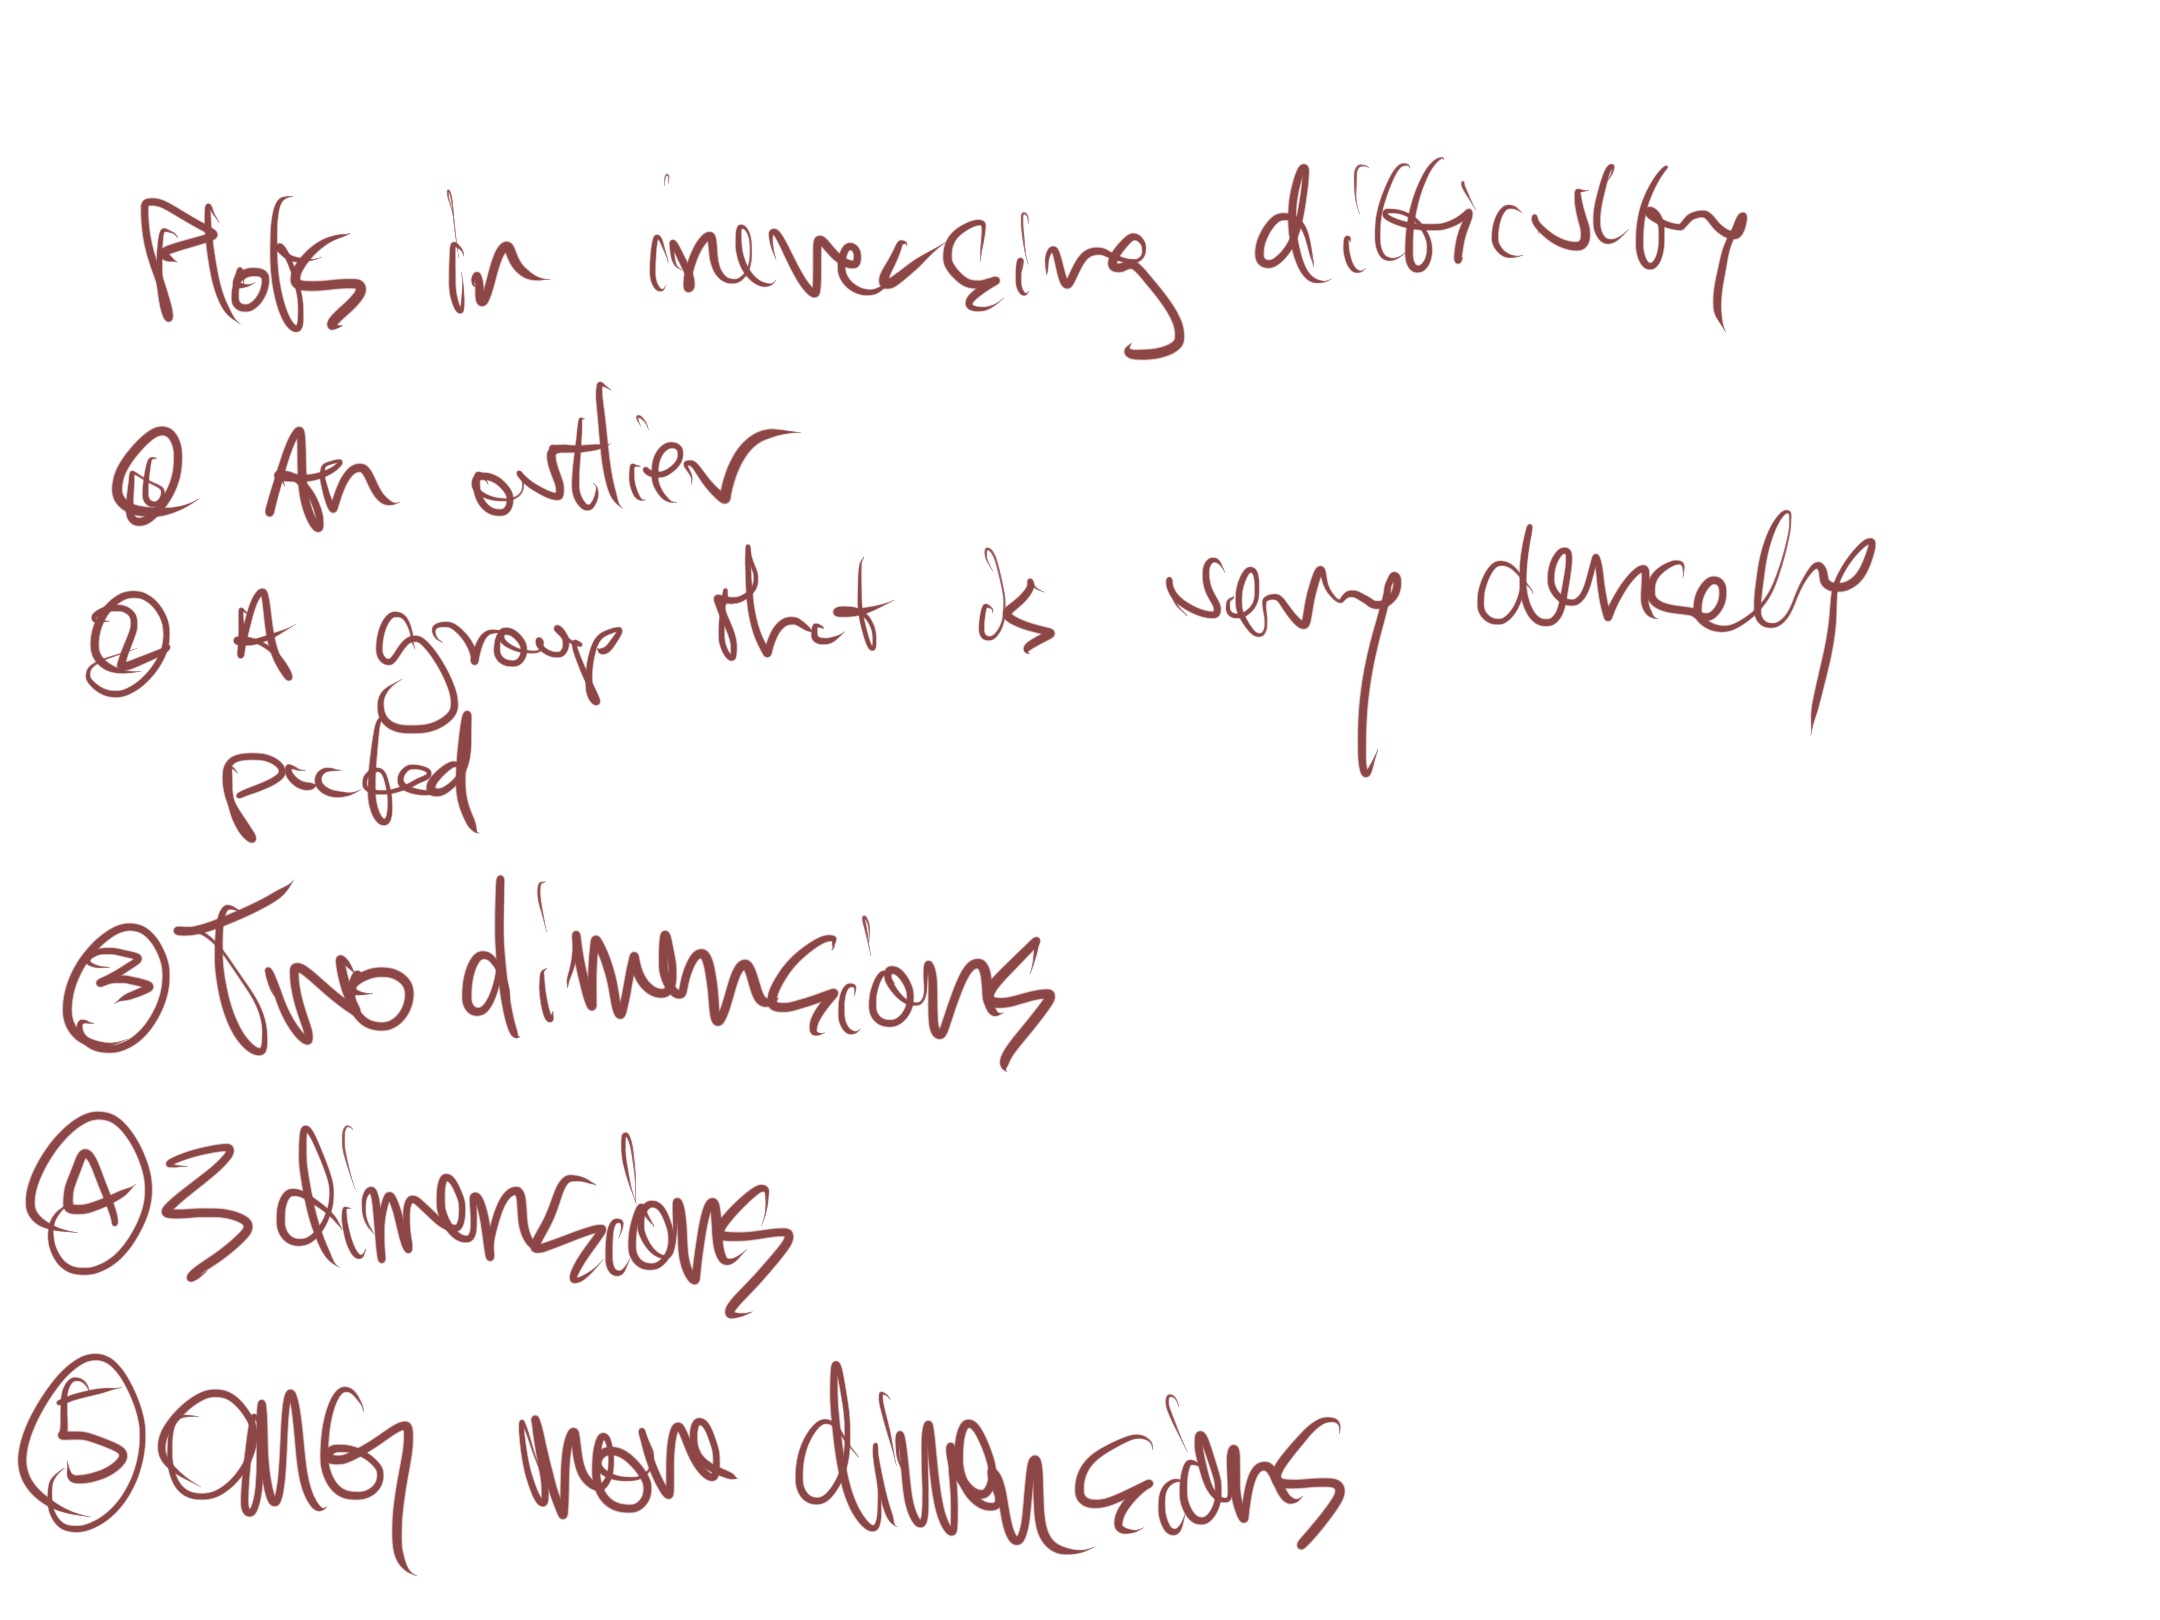 in increasing difficulty
① An outlier
② A group that is very densely
packed
③ Two dimensions
④ 3 dimensions
⑤ any more dimensions